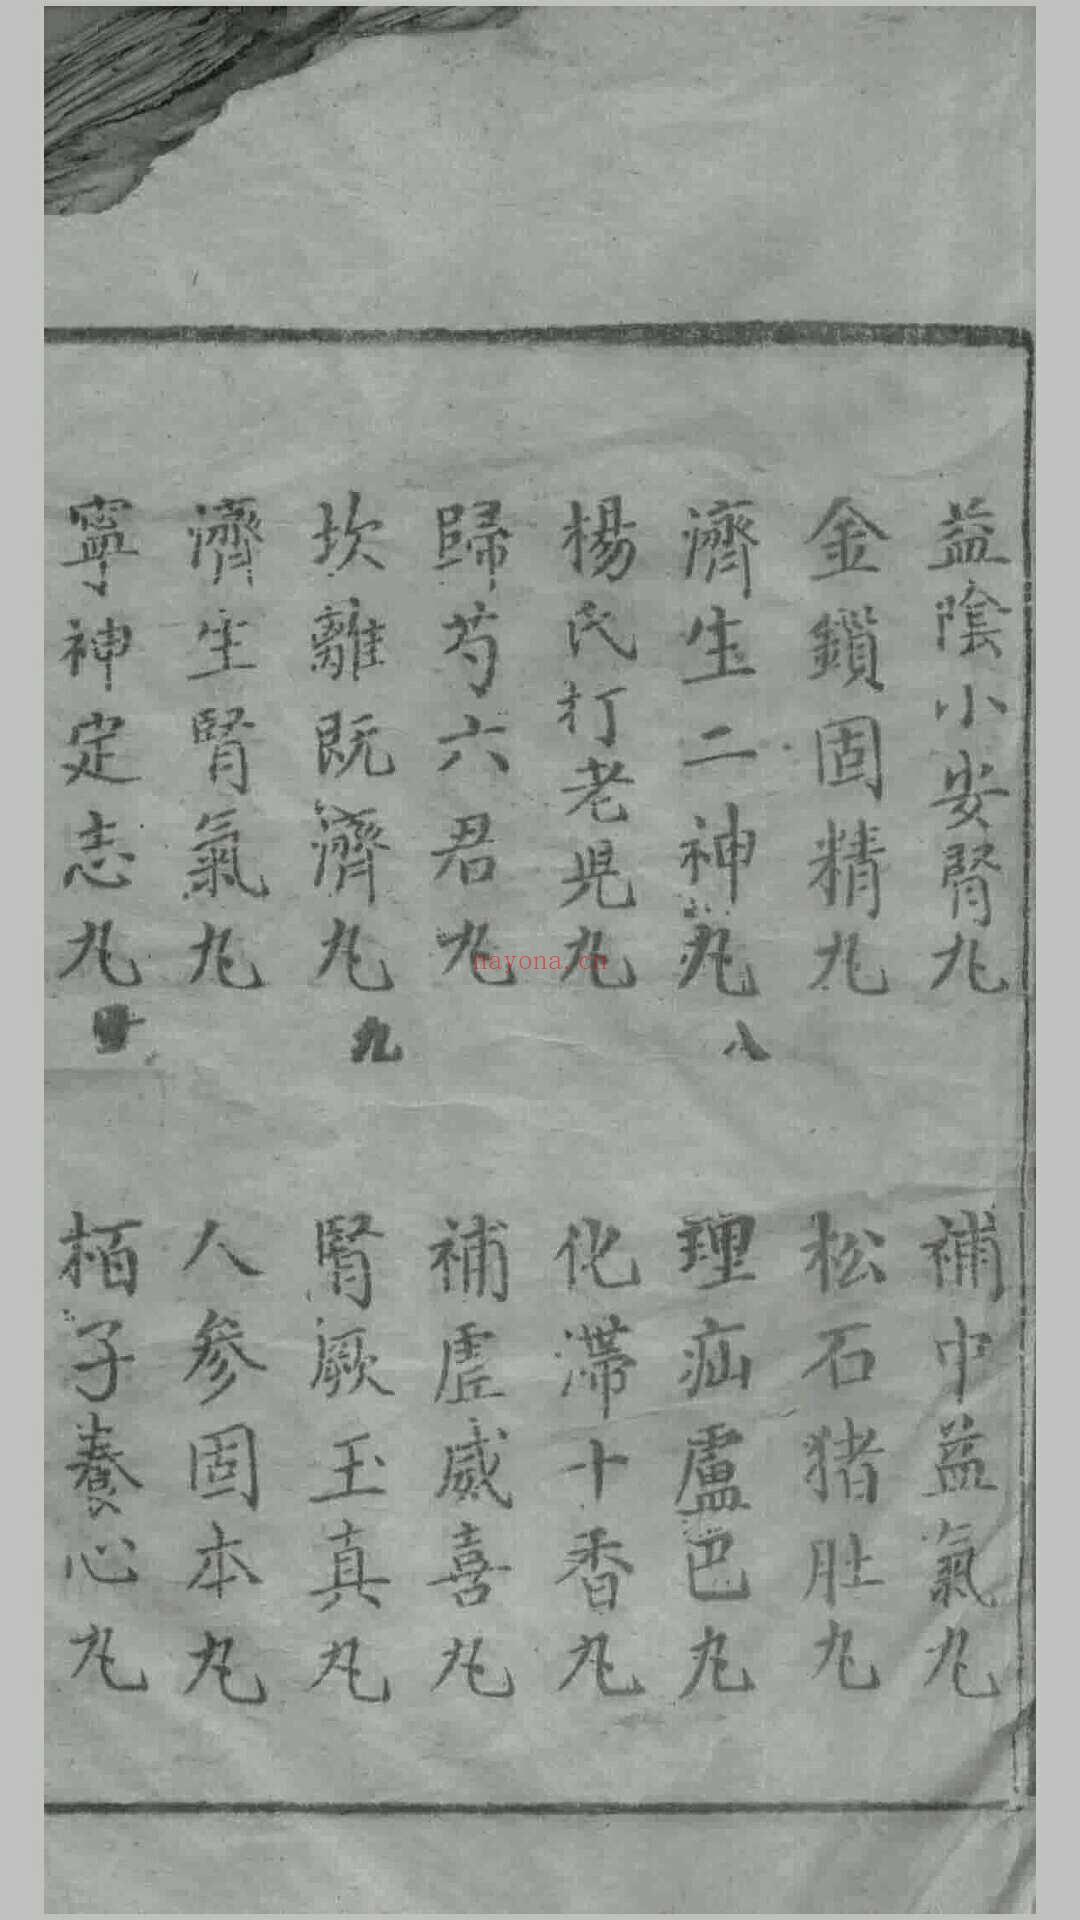 益陰小安腎丸
補中益氣丸
金鎖固精丸
松石猪肚丸
濟生二神丸
八
理疝盧巴丸
楊氏打老児丸
化滯十香丸
歸芍六君丸
補虛威喜丸
坎離既濟丸
九
腎厥玉真丸
濟生腎氣丸
人參固本丸
寧神定志丸
栢子養心丸
nayona.cn